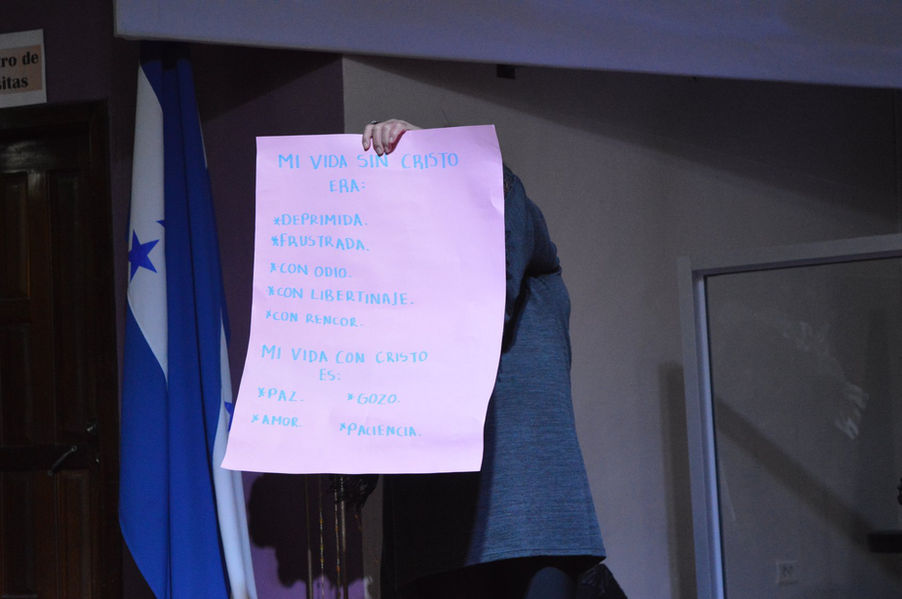 tro de
sitas
MI VIDA SIN CRISTO
ERA:
*DEPRIMIDA.
*FRUSTRADA.
*CON ODIO.
*CON LIBERTINAJE.
*CON RENCOR.
MI VIDA CON CRISTO
ES:
*PAZ. *GOZO.
*AMOR. *PACIENCIA.